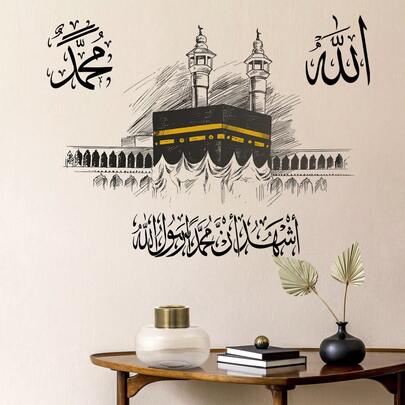 الله
محمد
أشهد أن محمدا رسول الله